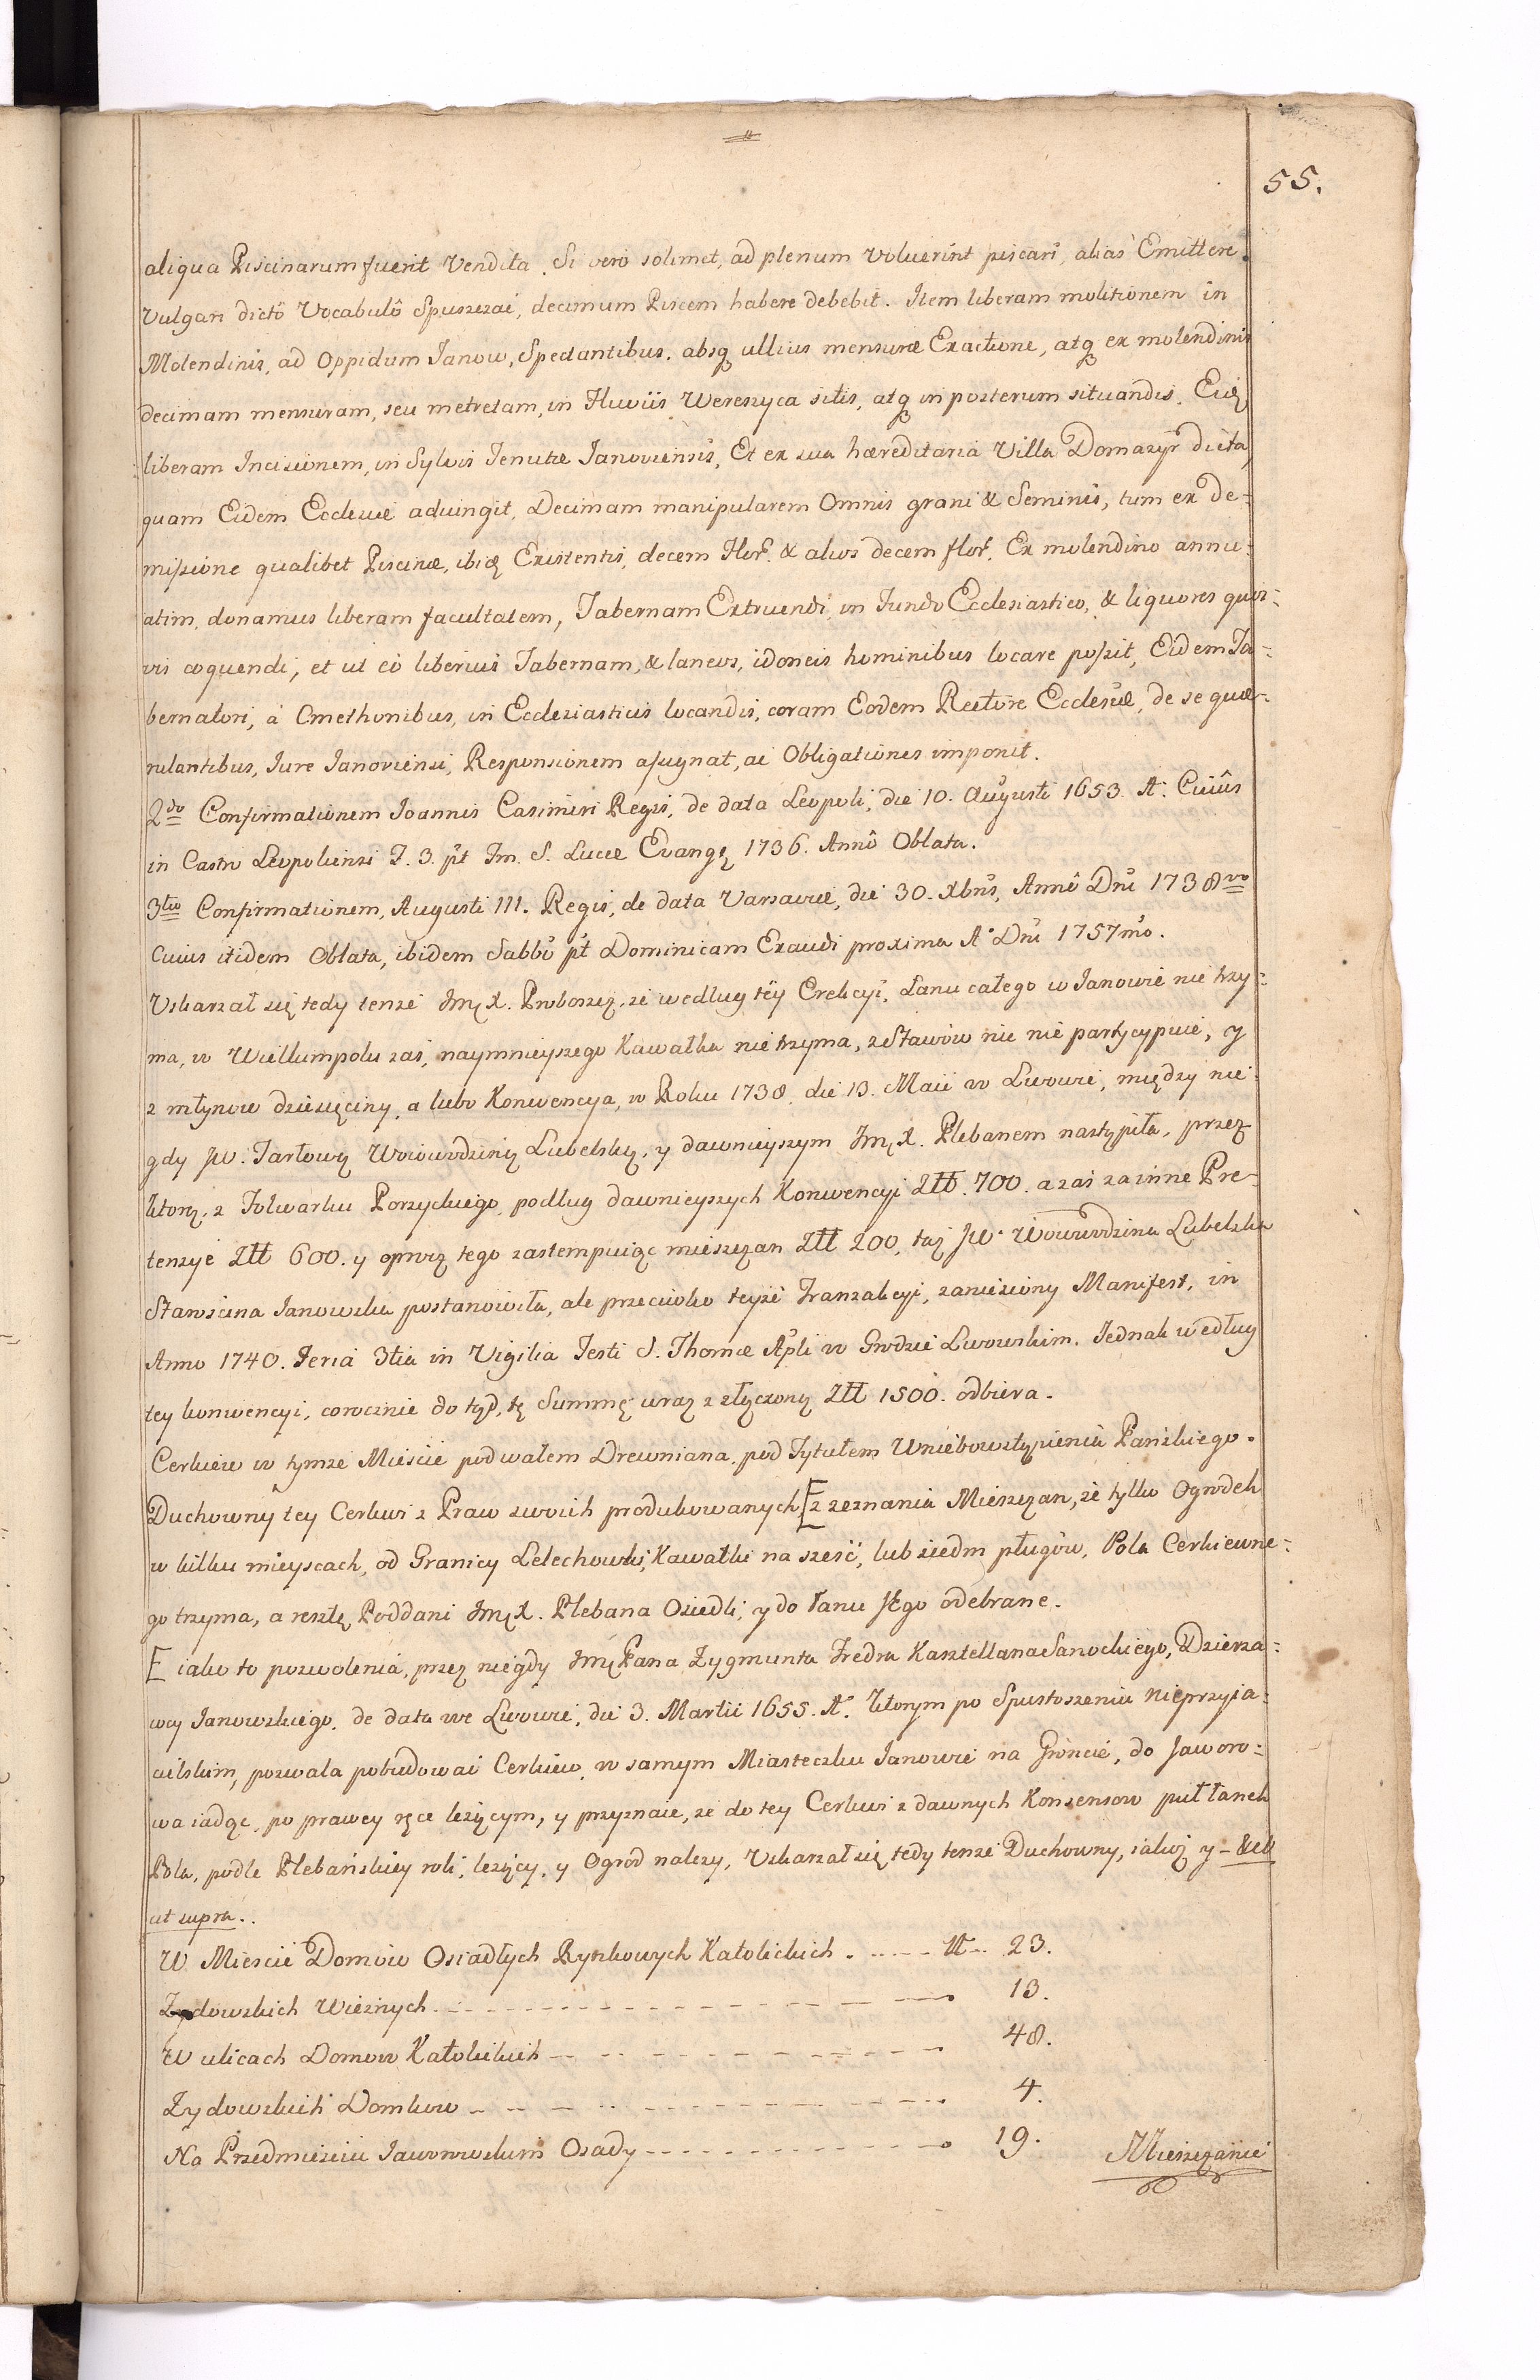 55.
aliqua Piscinarum fuerit Vendita. Si vero solimet, ad plenum voluerint piscari, alias Emittere
Vulgari dictô Vocabulô Spuszczai, decimum Piscem habere debebit. Item liberam molitionem in
Molendinis, ad Oppidum Janow, Spectantibus, absq ullius mensuræ Exactione, atq ex molendinis
decimam mensuram, seu metretam, in Fluviis Wereszyca sitis, atq in posterum situandis. Eidq
liberam Incisionem, in Sylvis Tenutæ Janoviensis, Et ex sua hæreditaria Villa Domazyr dicta,
quam Eidem Ecclesiæ adiungit, Decimam manipularem Omnis grani & Seminis, tum ex De=
missione qualibet Piscinæ, ibiq Existentis, decem Flor. & alios decem flor. Ex molendino annu=
atim, donamus liberam facultatem, Tabernam Extruendi, in Fundo Ecclesiastico, & liquores quos=
vis coquendi, et ut eò liberius Tabernam, & laneos, idoneis hominibus locare possit, Eidem Ta=
bernatori, à Cmethonibus, in Ecclesiasticis locandis, coram Eodem Rectore Ecclesiæ, de se quæ=
rulantibus, Iure Janoviensi, Responsionem assignat, ac Obligationes imponit.
2do Confirmationem Joannis Casimiri Regis, de data Leopoli, die 10. Augusti 1653. A. Cuiûs
in Castro Leopoliensi F. 3. pt Fm. S. Lucæ Evangę 1736. Annô Oblata.
3tio Confirmationem, Augusti III. Regis, de data Varsaviæ, die 30. Xbris, Annô Dni 1738vo
Cuius itidem Oblata, ibidem Sabbo pt Dominicam Exaudi proxima A° Dni 1757mo.
Uskarzał się tedy tenże Jmę X. Proboszcz, że według tey Erekcyi, Łanu całego w Janowie nie trzy=
ma, w Wiellumpolu zaś, naymnieyszego Kawałka nie trzyma, z Stawów nic nie partycypuie, y
z młynow dziesięciny, a lubo Konwencya, w Roku 1738. die 13. Maii w Lwowie, między nie=
gdy JW. Tarłową Woiewodziną Lubelską, y dawnieyszym Jmę X. Plebanem nastąpiła, przez
ktorą, z Folwarku Porzyckiego, podług dawnieyszych Konwencyi Złł. 700. a zaś za inne Pre=
tensye Złł 600. y oprocz tego zastempuiąc mieszczan Złł 200, taż JW. Woiewodzina Lubelska
Starościna Janowska postanowiła, ale przeciwko teyże Tranzakcyi, zaniesiony Manifest, in
Anno 1740. Feria 3tia in Vigilia Festi S. Thomæ Apli w Grodzie Lwowskim. Jednak według
tey konwencyi, corocznie do tąd, tę Summę wraz z złączoną Złł 1500. odbiera.
Cerkiew w tymże Mieście pod wałem Drewniana, pod Tytułem Wniebowstąpienia Pańskiego.
Duchowny tey Cerkwi z Praw swoich produkowanych [z zeznania Mieszczan, że tylko Ogrodek
w kilku mieyscach, od Granicy Lelechowki, Kawałki na sześć, lub siedm pługów, Pola Cerkiewne=
go trzyma, a resztę Poddani Jmę X. Plebana Osiedli, y do łanu Jego odebrane.
[ iako to pozwolenia, przez niegdy Jmę Pana Zygmunta Fredra Kasztellana Sanockiego, Dzierza=
wcy Janowskiego, de data we Lwowie, die 3. Martii 1655. A. Ktorym po Spustoszeniu nieprzyia=
cielskim, pozwala pobudowai Cerkiew, w samym Miasteczku Janowie na Gróncie, do Jaworo=
wa iadąc, po prawey ręce leżącym, y przyznaie, że do tey Cerkwi z dawnych Konsensow puł łanek
Pola, podle Plebańskiey roli, leżący, y Ogrod nalezy, Uskarzał się tedy tenże Duchowny, iakoż y –
ut supra..
W Mieście Domów Osiadłych Rynkowych Katolickich . ---- N -- 23.
Zydowskich Wieznych ---- 13.
W ulicach Domow Katolickich ---- 48.
Zydowskich Domkow ---- 4.
Na Przedmieściu Jaworowskim Osady ---- 19.
Mieszczanie